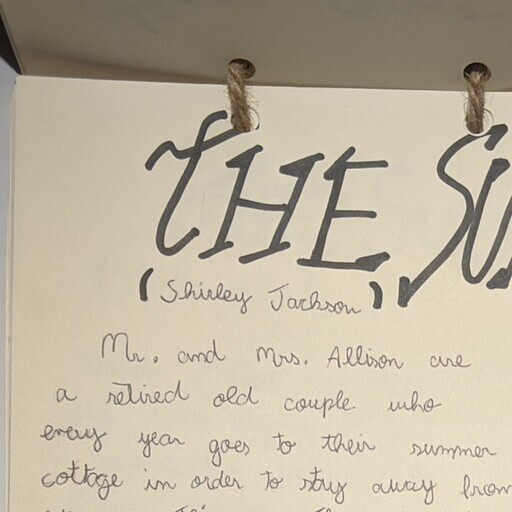 THE SU
(Shirley Jackson)
Mr. and Mrs. Allison are
a retired old couple who
every year goes to their summer
cottage in order to stay away from